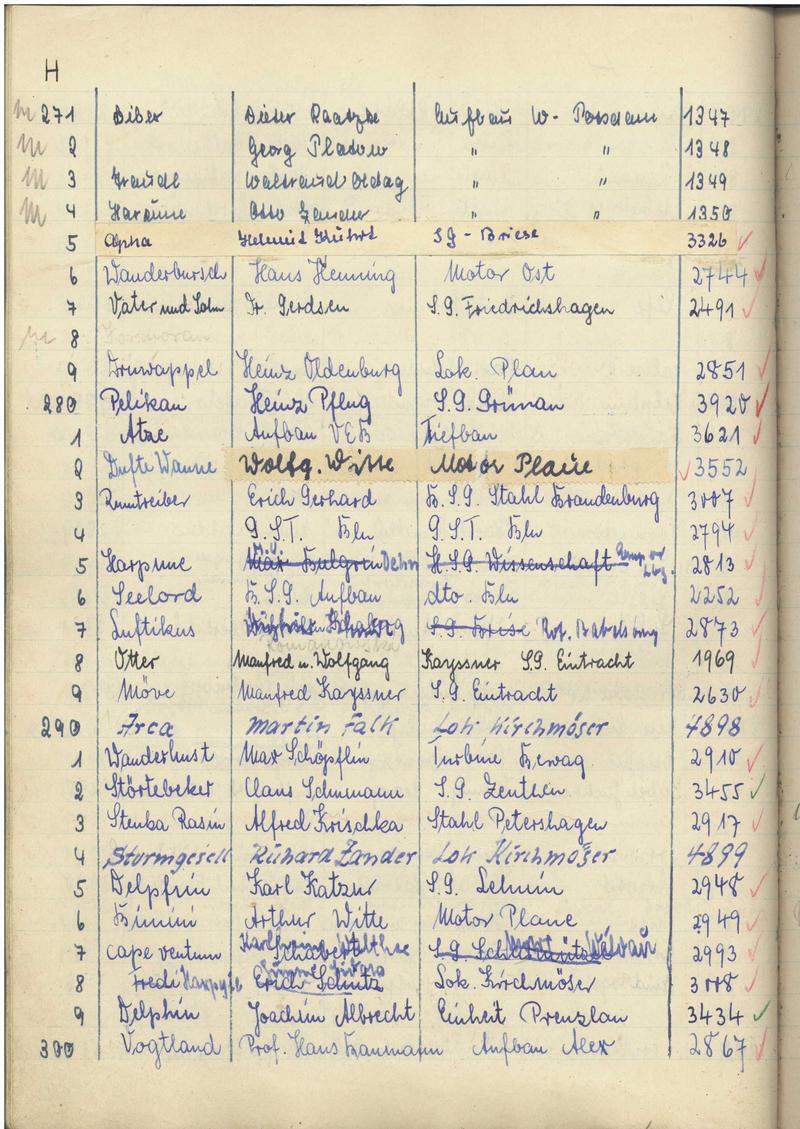 H
271 Biber Dieter Raatzke Aufbau W-Potsdam 1347
2 Georg Pladow " " 1348
3 Traudl Waltraud Oldag " " 1349
4 Harpune Otto Zander " " 1350
5 Alpha Helmut Kuhrt SG-Briese 3326
6 Wanderbursch Hans Henning Motor Ost 2744
7 Vater und Sohn Dr. Gerdsen S.G. Friedrichshagen 2491
8 Kormoran
9 Druwappel Heinz Oldenburg Lok. Plan 2851
280 Pelikan Heinz Pflug S.G. Grünau 3920
1 Atze Aufbau VEB Tiefbau 3621
2 Dufte Wanne Wolfg. Witte Motor Plaue 3552
3 Rumtreiber Erich Gerhard B.S.G. Stahl Brandenburg 3007
4 G.S.T. Bln G.S.T. Bln 2794
5 Harpune Max Bulgrin Dehn H.S.G. Wissenschaft 2813
6 Seelord B.S.G. Aufbau dto. Bln 2252
7 Luftikus S.G. Briese Rot. Babelsberg 2873
8 Otter Manfred u. Wolfgang Kayssner S.G. Eintracht 1969
9 Möve Manfred Kayssner S.G. Eintracht 2630
290 Arca Martin Falk Lok Kirchmöser 4898
1 Wanderlust Max Schöpflin Turbine Bewag 2910
2 Störtebeker Claus Schumann S.G. Zeuthen 3455
3 Stenka Rasin Alfred Krischka Stahl Petershagen 2917
4 Sturmgesell Richard Zander Lok Kirchmöser 4899
5 Delpfin Karl Katzur S.G. Lehnin 2948
6 Bimini Arthur Witte Motor Plaue 2949
7 cape ventum Karlheinz Walthse Schabert S.G. 2993
8 Fredi Harpyie Erich Schütz Lok. Kirchmöser 3008
9 Delphin Joachim Albrecht Einheit Prenzlau 3434
300 Vogtland Prof. Hans Baumann Aufbau Alex 2867